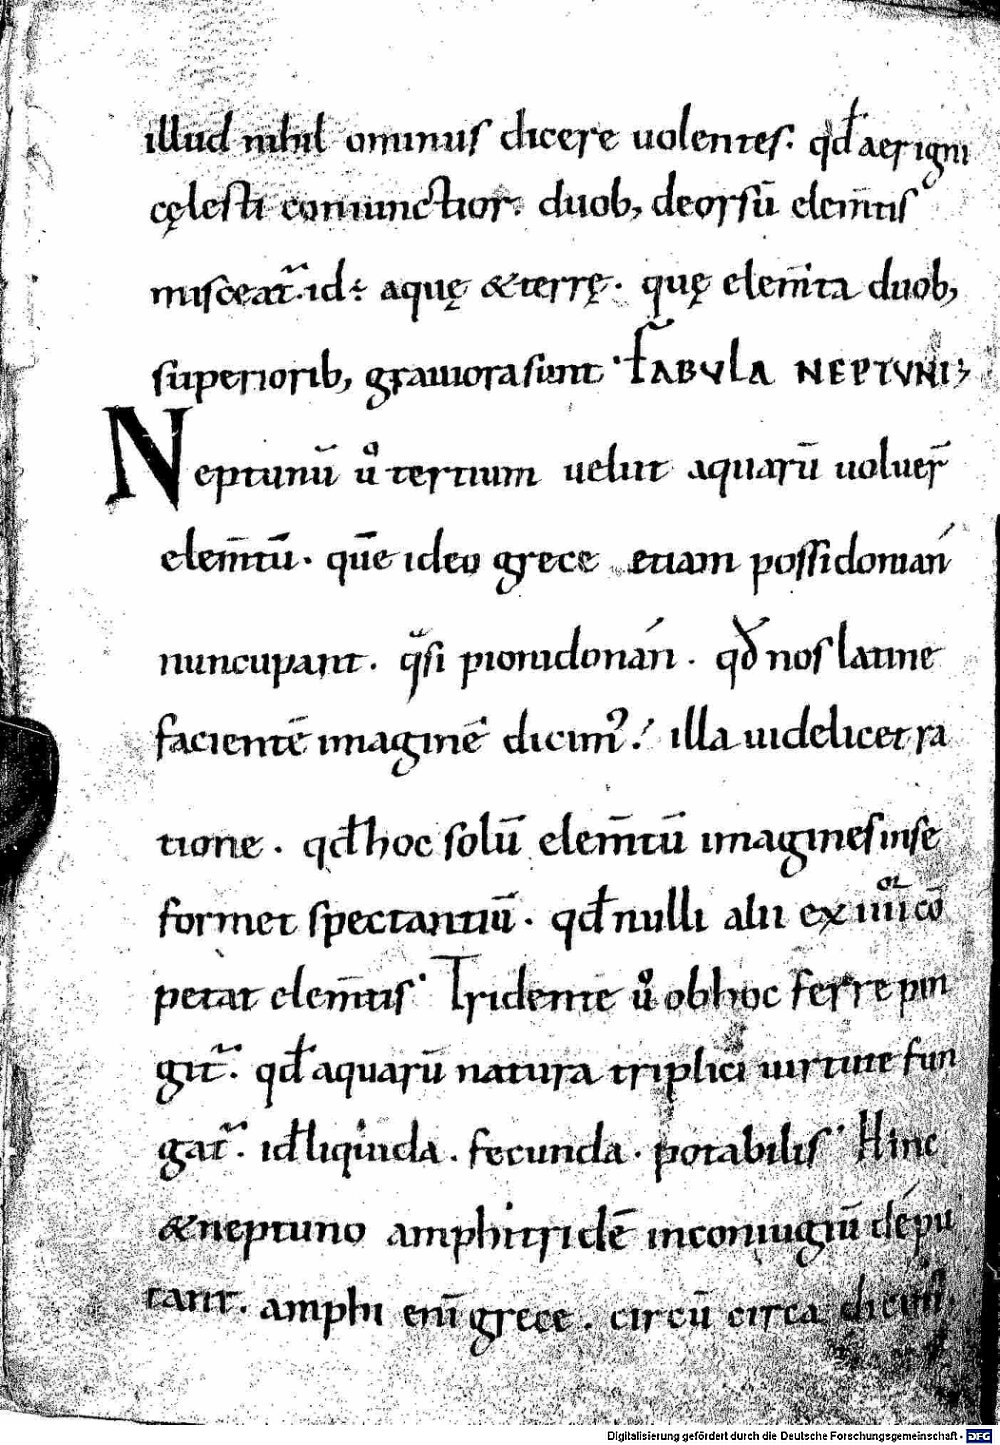 illud nihil ominus dicere uolentes. qđ aer igni
cęlesti coniunctior. duob; deorsū elem̄tis
misceat᷑. id÷ aquę &terrę. quę elem̄ta duob;
superiorib; grauiora sunt. FABVLA NEPTVNI;
Neptunū ů tertium uelut aquarū uoluer̄
elem̄tū. quē ideo grece etiam possidonian
nuncupant. q̈si pionidonan. qđ nos latine
facientē imaginē dicim᷒. illa uidelicet ra
tione. qđ hoc solū elem̄tū imagines in se
formet spectantiū. qđ nulli alii ex iiii^or cō
petat elem̄tis. Tridentē ů ob hoc ferre pin
git᷑. qđ aquarū natura triplici uirtute fun
gat᷑. id̄ liquida. fecunda. potabilis. Hinc
&neptuno amphitridē in coniugiū depu
tant. amphi enī grece. circū circa dicim᷒.
Digitalisierung gefördert durch die Deutsche Forschungsgemeinschaft - DFG